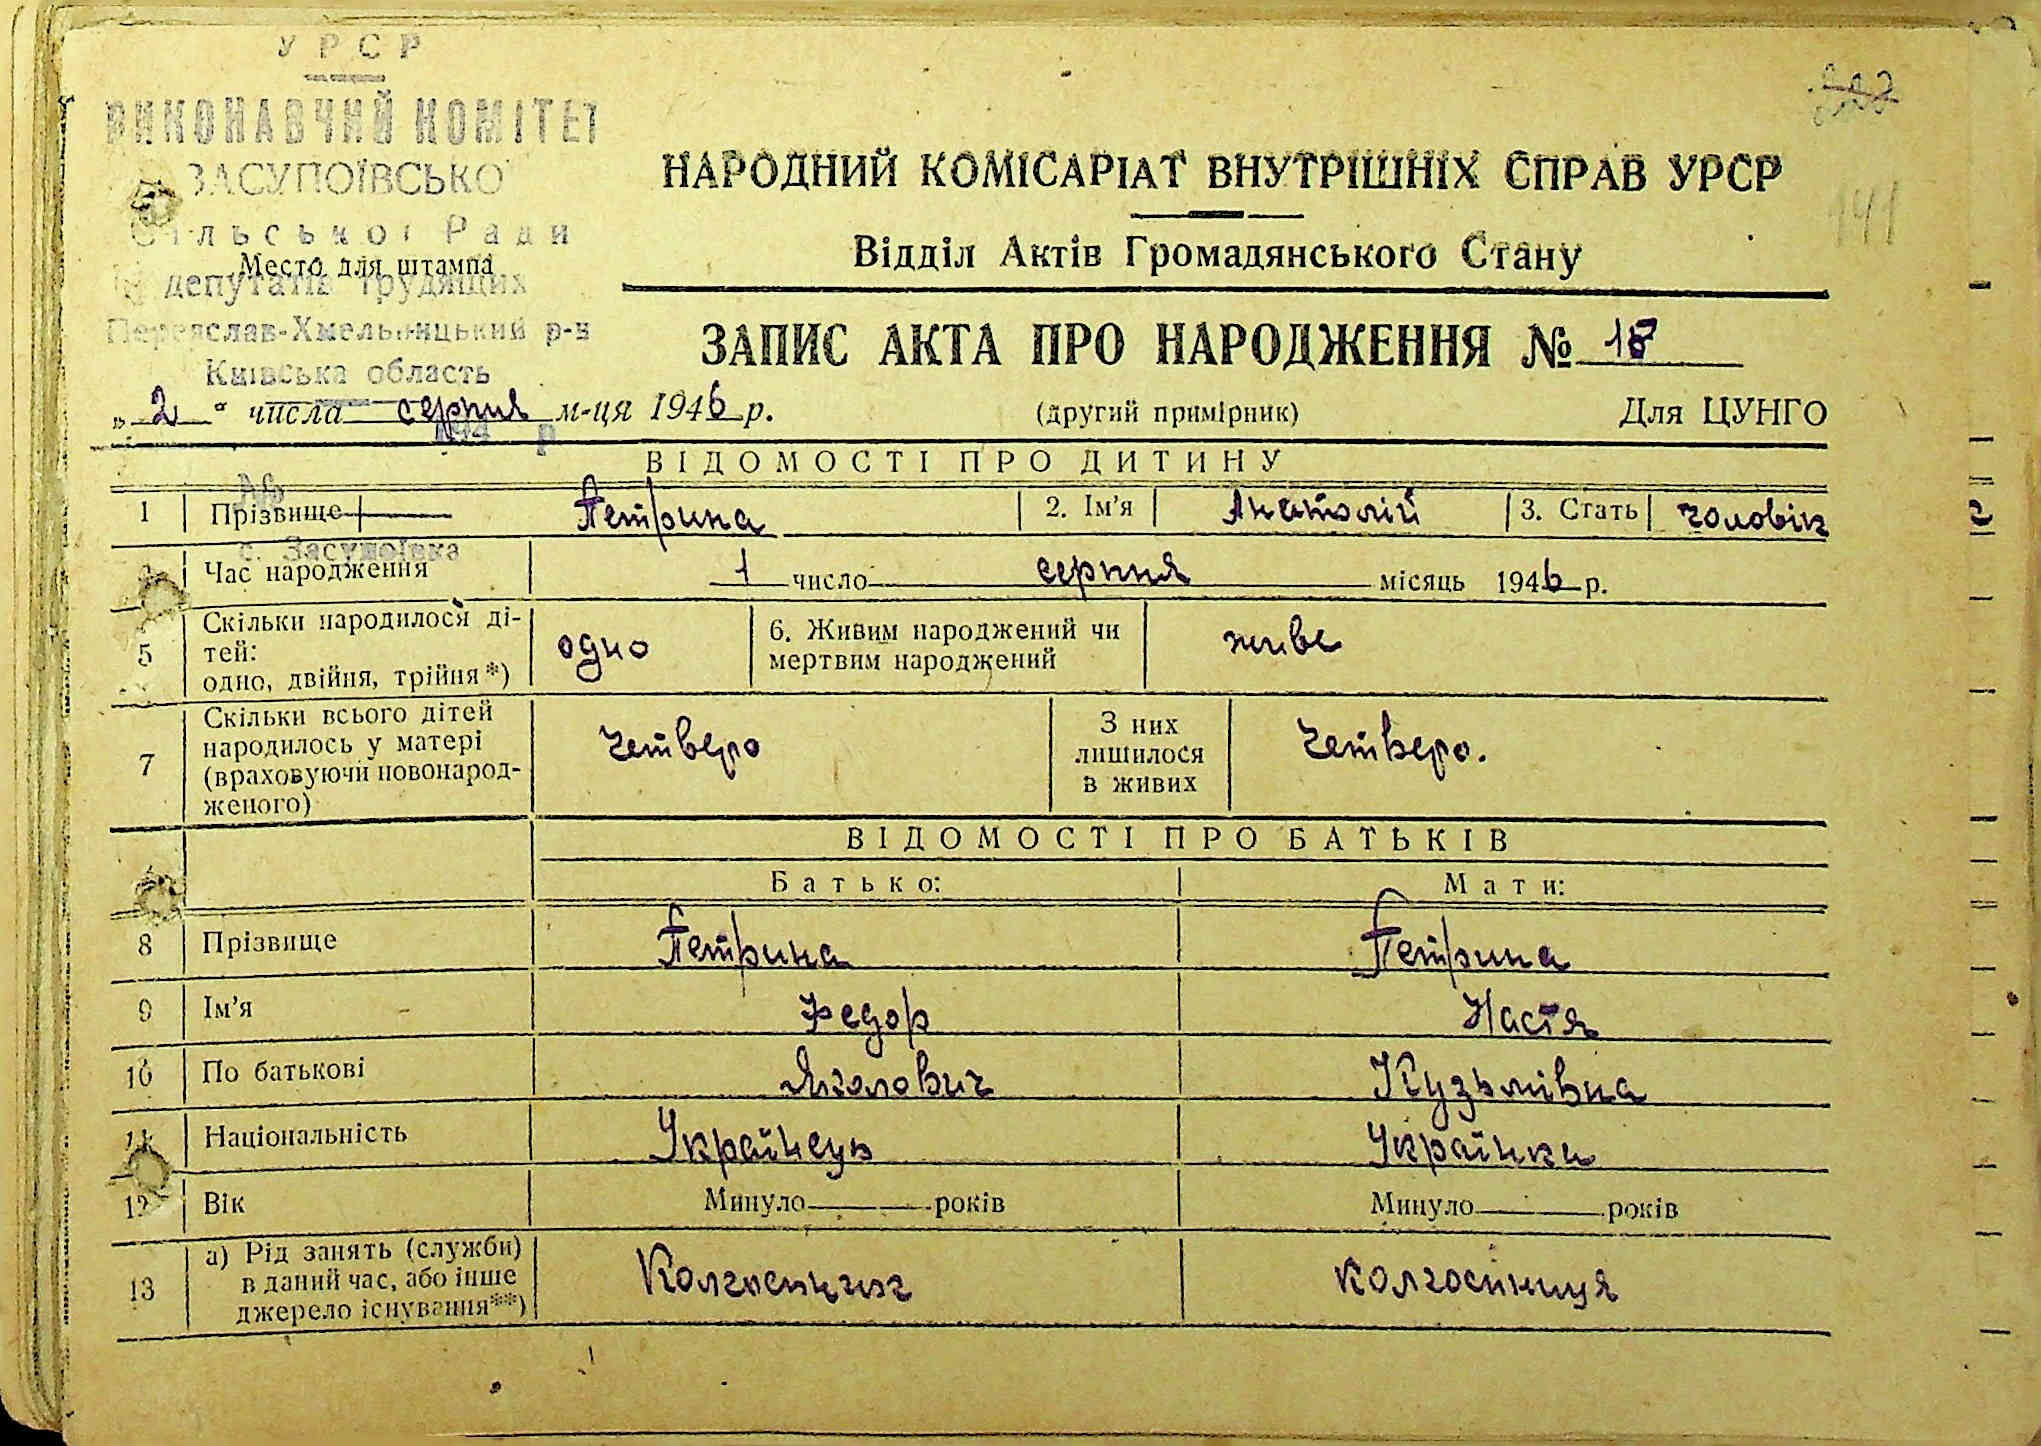 УРСР
ВИКОНАВЧИЙ КОМІТЕТ
ЗАСУПОЇВСЬКО
Сільської Ради
Место для штампа
депутатів трудящих
Переяслав-Хмельницький р-н
Київська область
НАРОДНИЙ КОМІСАРІАТ ВНУТРІШНІХ СПРАВ УРСР
141
Відділ Актів Громадянського Стану
ЗАПИС АКТА ПРО НАРОДЖЕННЯ № 18
„ 2 “ числа серпня м-ця 1946 р. (другий примірник) Для ЦУНГО
194 р
ВІДОМОСТІ ПРО ДИТИНУ
№
1 Прізвище Петрина 2. Ім'я Анатолій 3. Стать чоловік
с. Засупоївка
Час народження 1 число серпня місяць 1946 р.
5 Скільки народилося ді-
тей:
одно, двійня, трійня*) одно 6. Живим народжений чи
мертвим народжений живе
7 Скільки всього дітей
народилось у матері
(враховуючи новонарод-
женого) четверо З них
лишилося
в живих четверо.
ВІДОМОСТІ ПРО БАТЬКІВ
Батько: Мати:
8 Прізвище Петрина Петрина
9 Ім'я Федор Настя
10 По батькові Яколович Кузьмівна
11 Національність Українець Українка
12 Вік Минуло років Минуло років
13 а) Рід занять (служби)
в даний час, або інше
джерело існування**) Колгоспник колгоспниця